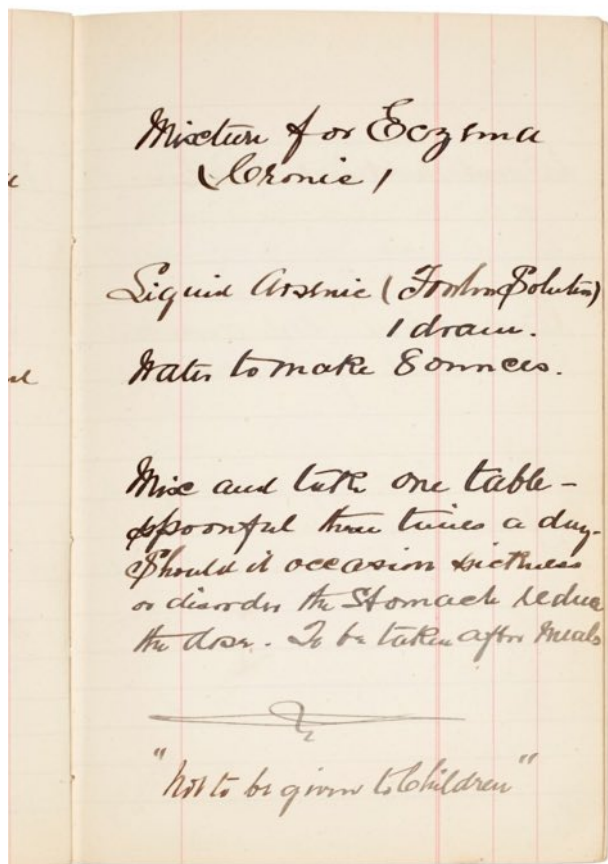 Mixture for Eczema
(Cronic)
Liquid Arsenic (Fowlers Solution)
1 dram.
Water to make 8 ounces.
Mix and take one table-
spoonful three times a day.
Should it occasion sickness
or disorder the Stomach reduce
the dose. To be taken after Meals
"Not to be given to Children"